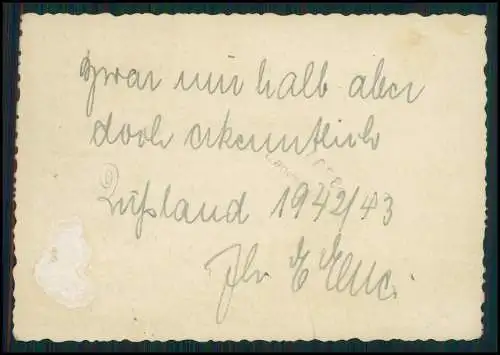 zwar nur halb aber
doch erkenntlich
Rußland 1942/43